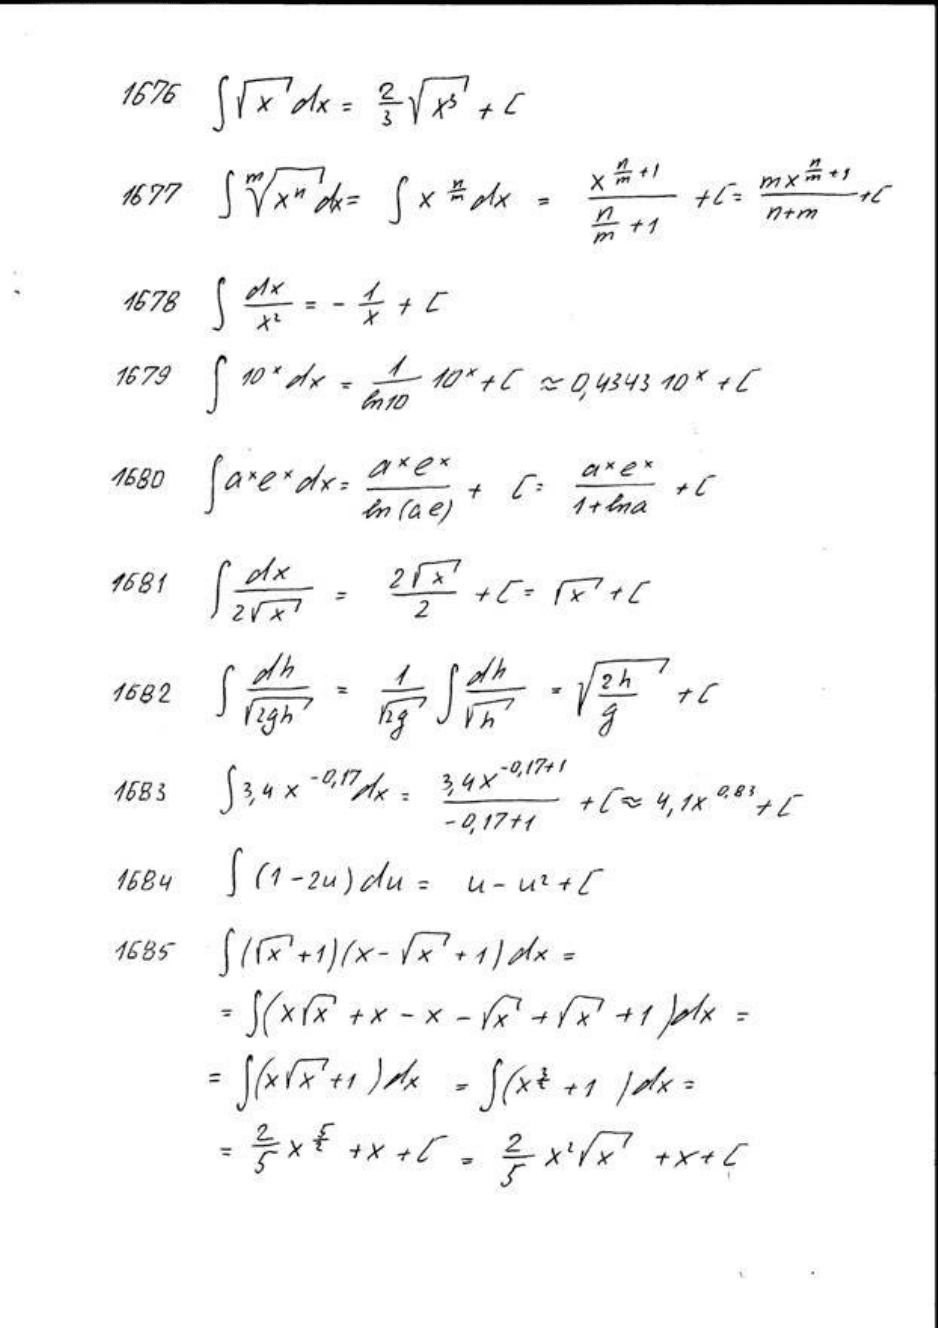 1676 ∫√x dx = 2/3 √x³ + C
1677 ∫ ᵐ√xⁿ dx = ∫ x^(n/m) dx = x^(n/m + 1) / (n/m + 1) + C = m x^(n/m + 1) / (n+m) + C
1678 ∫ dx/x² = - 1/x + C
1679 ∫ 10^x dx = 1/ln10 10^x + C ≈ 0,4343 10^x + C
1680 ∫ a^x e^x dx = a^x e^x / ln(ae) + C = a^x e^x / (1+lna) + C
1681 ∫ dx/(2√x) = 2√x/2 + C = √x + C
1682 ∫ dh/√(2gh) = 1/√(2g) ∫ dh/√h = √(2h/g) + C
1683 ∫ 3,4 x^(-0,17) dx = 3,4x^(-0,17+1) / (-0,17+1) + C ≈ 4,1x^(0,83) + C
1684 ∫ (1-2u) du = u - u² + C
1685 ∫ (√x + 1)(x - √x + 1) dx =
= ∫(x√x + x - x - √x + √x + 1) dx =
= ∫(x√x + 1) dx = ∫(x^(3/2) + 1) dx =
= 2/5 x^(5/2) + x + C = 2/5 x²√x + x + C